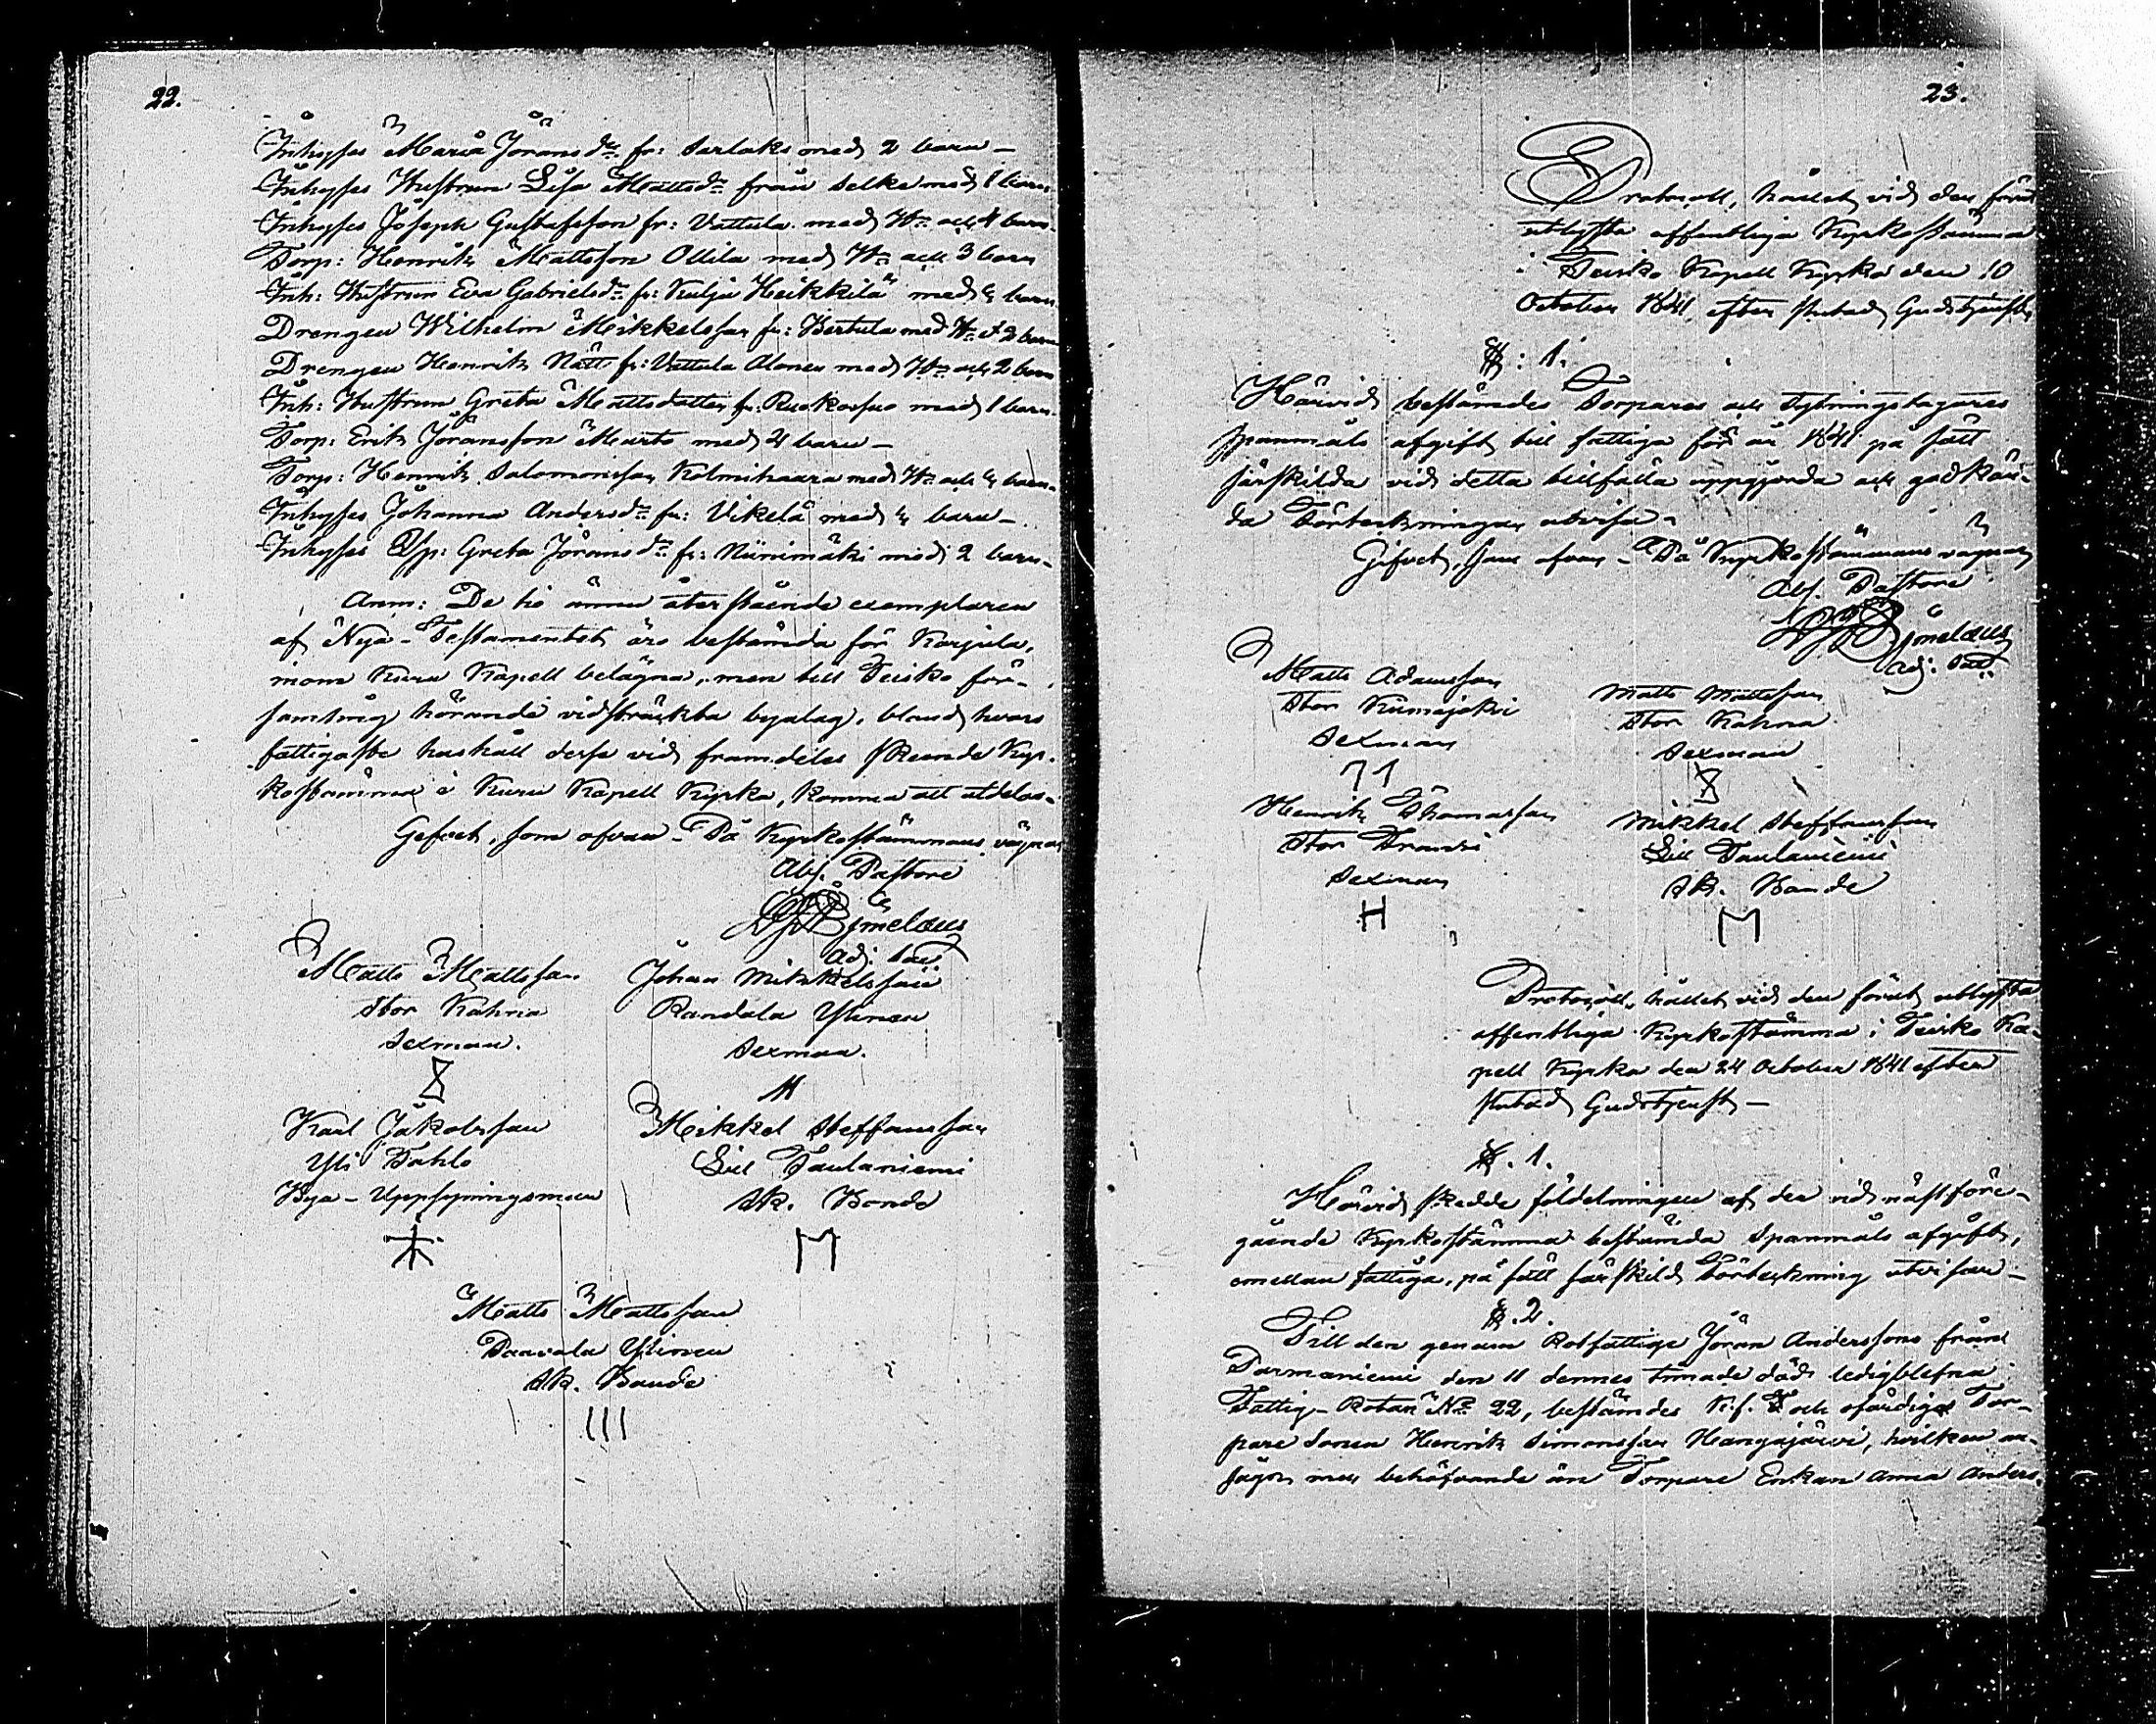 22.
Inhyses Maria Jöransdr fr: Sarlaks med 2 barn –
Inhyses Hustrun Lisa Mattsdr från Selke med 1 barn
Inhyses Joseph Gustafsson fr: Vattula med Hu och 4 barn
Torp: Henrik Mattsson Ollila med Hu och 3 barn
Inh: Hustrun Eva Gabrielsdr fr: Kulju Heikkilä med 4 barn
Drengen Wilhelm Mikkelsson fr: Berttula med Hu & 2 barn
Drengen Henrik Nätt fr: Vattula Alanen med Hu och 2 barn
Inh: Hustrun Greta Mattsdotter fr: Ruokosuo med 1 barn
Torp: Erik Jöransson Murto med 4 barn –
Torp: Henrik Salomonsson Kolmihaara med Hu och 4 barn
Inhyses Johanna Andersdr fr: Vikelä med 4 barn –
Inhyses Greta Jöransdr fr: Niinimäki med 2 barn –
Anm: De tio ännu återstående exemplaren
af Nya-Testamentet äro bestämda för Karjula,
inom Kuru Kapell belägna, men till Teisko för-
samling hörande vidsträckta byalag, bland hvars
fattigaste hushåll dessa vid framdeles skeende Kyr-
kostämma i Kuru Kapell Kyrka, komma att utdelas –
Gifvet, som ofvan – På Kyrkostämmans vägnar
Abs. Pastore
Simelius
Adj. Sac.
Matts Mattsson
Stor Kahna
Sexman.
Johan Mikkelsson
Pandala Ylinen
Sexman.
M
Karl Jakobsson
Yli Pohlo
Bya-Uppsyningsman
Mikkel Steffansson
Lill Paulaniemi
Sk. Bonde
M
Matts Mattsson
Paavola Ylinen
Sk. Bonde
III
23.
Protocoll, hållet vid den förut
utlysta offentliga Kyrkostämma
i Teisko Kapell Kyrka den 10
October 1841 efter slutad Gudstjenst,
§: 1.
Härvid bestämdes Torpares och Sytningstagares
spannmåls afgift till fattiga för år 1841 på sätt
särskilda vid detta tillfälle uppgjorda och godkän-
da Förteckningar utvisa –
Gifvet, som ofvan – På Kyrkostämmans vägnar
Abs. Pastore
Simelius
Adj. Sac.
Matts Adamsson
Stor Kiimajoki
Sexman
Matts Mattsson
Stor Kahna
Sexman
Henrik Thomasson
Stor
Sexman
H
Mikkel Steffansson
Lill Paulaniemi
Sk. Bonde
M
Protocoll, hållet vid den förut utlysta
offentliga Kyrkostämma i Teisko Ka-
pell Kyrka den 24 October 1841 efter
slutad Gudstjenst –
§. 1.
Härvid skedde fördelningen af den vid nästföre-
gående Kyrkostämma bestämda Spannmåls afgift,
emellan fattiga, på sätt särskild Förteckning utvisar –
§. 2.
Till den genom Rotfattige Jöran Anderssons från
Parmaniemi den 11 dennes timade död, ledigblefna
Fattig-Rotan No 22, bestämdes och ofärdige Tor-
pare Sonen Henrik Simonsson Hangasjärvi, hvilken an-
sågs mer behöfvande än Torpare Enkan Anna Anders